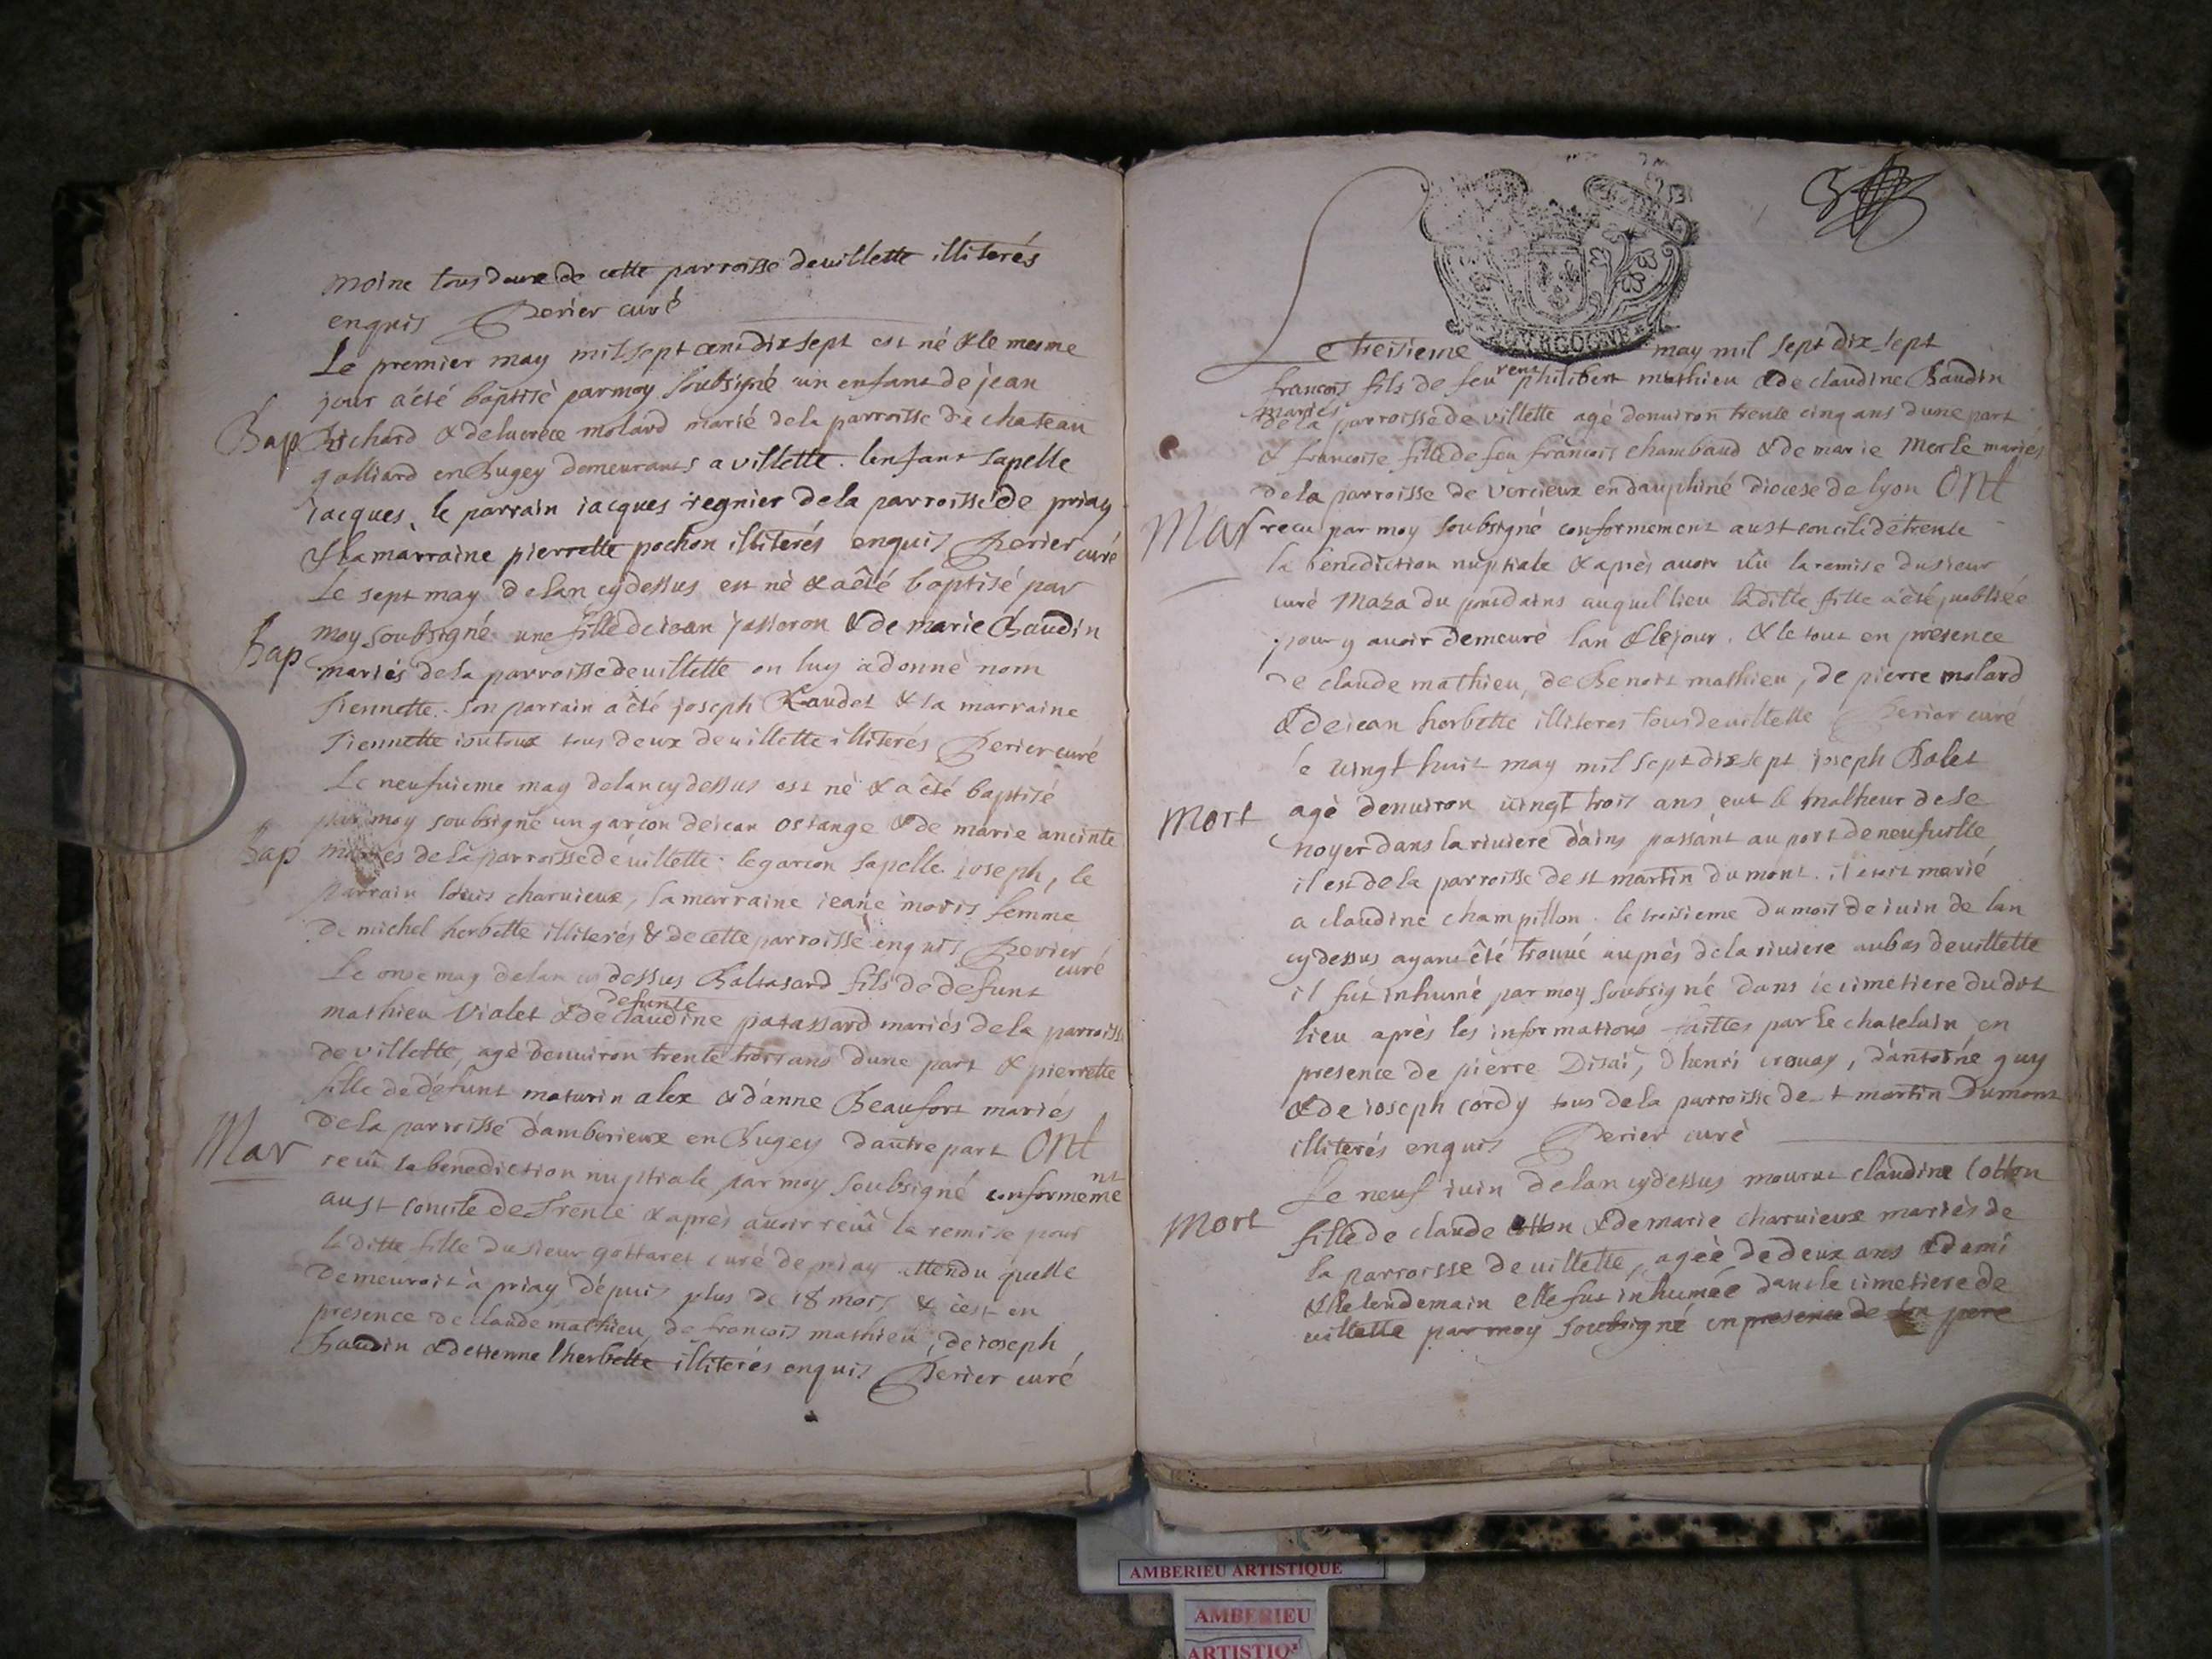 moine tous deux de cette parroisse de villette illiterés
enquis Perier curé
Le premier may mil sept cent dix sept est né & le mesme
jour a été baptisé par moy soubsigné un enfant de jean
Bap Richard & de lucrece molard marié de la parroisse de chateau
galliard en Bugey demeurants a villette. lenfant sapelle
jacques, le parrain jacques regnier de la parroisse de priay
& la marraine pierrette pochon illiterés enquis Perier curé
Le sept may de lan cy dessus est né & a été baptisé par
moy soubsigné une fille de jean jasseron & de marie Baudin
Bap mariés de la parroisse de villette on luy a donné nom
tiennette. son parrain a été joseph & la marraine
tiennette tous deux de villette illiterés Perier curé
Le neufvieme may de lan cy dessus est né & a été baptisé
par moy soubsigné un garcon de jean ostange & de marie
Bap mariés de la parroisse de villette. le garcon sapelle joseph, le
parrain louis charvieux, la marraine jeane moris femme
de michel herbette illiterés & de cette parroisse enquis Perier
curé
Le onse may de lan cy dessus Baltasard fils de defunt
defunte
mathieu Violet & de claudine patassard mariés de la parroisse
de villette, agé denviron trente trois ans dune part & pierrette
fille de défunt maturin alex & d'anne Beaufort mariés
Mar de la parroisse d'amberieux en Bugey dautre part ont
receu la benediction nuptiale par moy soubsigné conformement
au st concile de Trente & après avoir receu la remise pour
la ditte fille du sieur gottaret curé de priay attendu quelle
demeuroit à priay dépuis plus de 18 mois & cest en
presence de claude mathieu, de francois mathieu, de joseph
Baudin & detienne lherbette illiterés enquis Perier curé
BOURGOGNE
Le treisieme may mil sept dix-sept
francois fils de feu philibert mathieu & de claudine Baudin
mariés
de la parroisse de villette agé denviron trente cinq ans dune part
& francoise fille de feu francois chambaud & de marie Merle mariés
de la parroisse de vercieux en dauphiné diocese de lyon ont
Mar recu par moy soubsigné conformement au st concile de trente
la benediction nuptiale & après avoir vû la remise du sieur
curé Maza du pondains auquel lieu laditte fille a été publiée
pour y avoir demeuré lan & le jour. & le tout en presence
de claude mathieu, de Benoit mathieu, de pierre molard
& de jean herbette illiteres tous de villette Perier curé
le vingt huit may mil sept dix sept joseph Bolet
Mort agé denviron vingt trois ans eut le malheur de se
noyer dans la riviere d'ains passant au port de neufville
il est de la parroisse de st martin du mont. il étoit marié
a claudine champillon. le troisieme du mois de juin de lan
cy dessus ayant été trouvé auprès de la riviere au bas de villette
il fut inhumé par moy soubsigné dans le cimetiere dudit
lieu après les informations faittes par le chatelain en
presence de pierre Disai, d'henri crouay, d'antoine guy
& de joseph cordy tous de la parroisse de st martin Dumont
illiterés enquis Perier curé
Le neuf juin de lan cy dessus mourut claudine Cotton
Mort fille de claude cotton & de marie charvieux mariés de
la parroisse de villette, agée de deux ans & demi
& le lendemain elle fut inhumée dans le cimetiere de
villette par moy soubsigné en presence de son pere
AMBERIEU ARTISTIQUE
AMBERIEU
ARTISTIQ